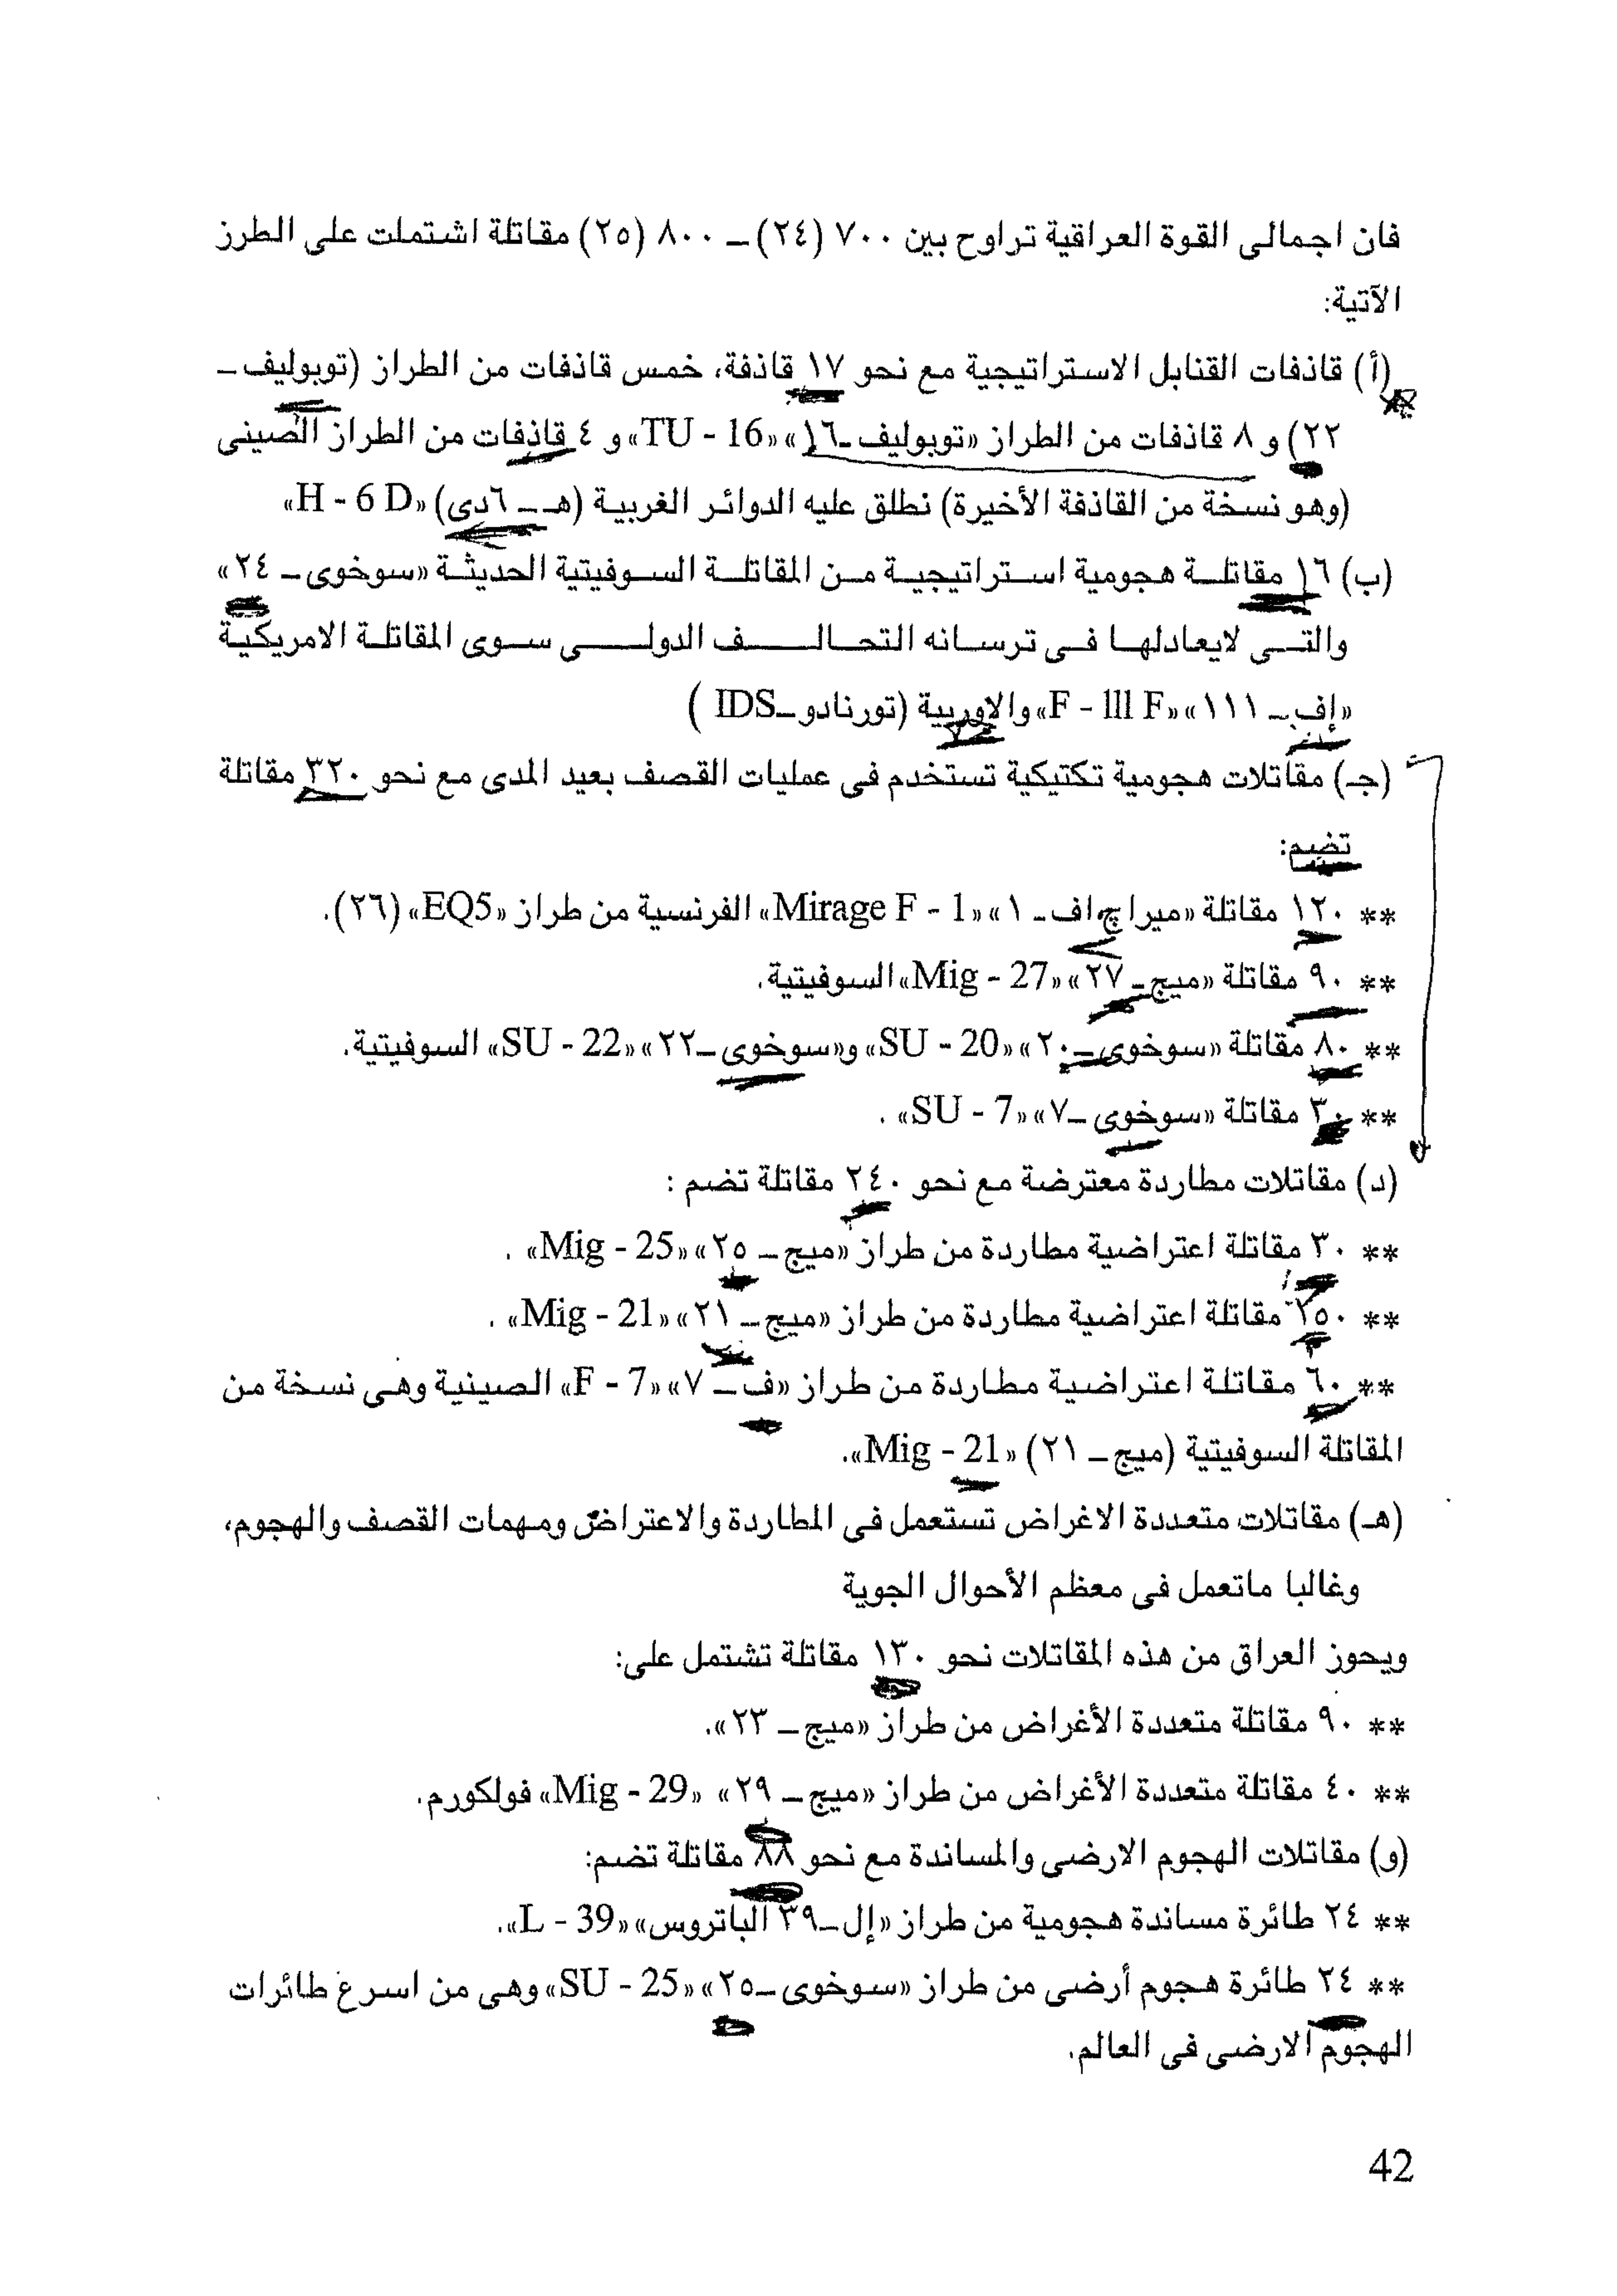 فان اجمالى القوة العراقية تراوح بين ٧٠٠ (٢٤) ــ ٨٠٠ (٢٥) مقاتلة اشتملت على الطرز
الآتية:
(أ) قاذفات القنابل الاستراتيجية مع نحو ١٧ قاذفة، خمس قاذفات من الطراز (توبوليف ــ
٢٢) و ٨ قاذفات من الطراز «توبوليف ــ ١٦» «TU - 16» و ٤ قاذفات من الطراز الصينى
(وهو نسخة من القاذفة الأخيرة) نطلق عليه الدوائر الغربية (هـ ــ ٦دى) «H - 6 D»
(ب) ١٦ مقاتلة هجومية استراتيجية من المقاتلة السوفيتية الحديثة «سوخوى ــ ٢٤»
والتى لايعادلها فى ترسانه التحالف الدولى سوى المقاتلة الامريكية
«إف ــ ١١١» «F - 111 F» والاوربية (تورنادو ــ IDS )
(جـ) مقاتلات هجومية تكتيكية تستخدم فى عمليات القصف بعيد المدى مع نحو ٣٢٠ مقاتلة
تضم:
** ١٢٠ مقاتلة «ميراج اف ــ ١» «Mirage F - 1» الفرنسية من طراز «EQ5» (٢٦).
** ٩٠ مقاتلة «ميج ــ ٢٧» «Mig - 27» السوفيتية.
** ٨٠ مقاتلة «سوخوى ــ ٢٠» «SU - 20» و«سوخوى ــ ٢٢» «SU - 22» السوفيتية.
** ٣٠ مقاتلة «سوخوى ــ ٧» «SU - 7» .
(د) مقاتلات مطاردة معترضة مع نحو ٢٤٠ مقاتلة تضم :
** ٣٠ مقاتلة اعتراضية مطاردة من طراز «ميج ــ ٢٥» «Mig - 25» .
** ٢٥٠ مقاتلة اعتراضية مطاردة من طراز «ميج ــ ٢١» «Mig - 21» .
** ٦٠ مقاتلة اعتراضية مطاردة من طراز «ف ــ ٧» «F - 7» الصينية وهى نسخة من
المقاتلة السوفيتية (ميج ــ ٢١) «Mig - 21».
(هـ) مقاتلات متعددة الاغراض تستعمل فى المطاردة والاعتراض ومهمات القصف والهجوم،
وغالبا ماتعمل فى معظم الأحوال الجوية
ويحوز العراق من هذه المقاتلات نحو ١٣٠ مقاتلة تشتمل على:
** ٩٠ مقاتلة متعددة الأغراض من طراز «ميج ــ ٢٣».
** ٤٠ مقاتلة متعددة الأغراض من طراز «ميج ــ ٢٩» «Mig - 29» فولكورم.
(و) مقاتلات الهجوم الارضى والمساندة مع نحو ٨٨ مقاتلة تضم:
** ٢٤ طائرة مساندة هجومية من طراز «إل ــ ٣٩ الباتروس» «L - 39».
** ٢٤ طائرة هجوم أرضى من طراز «سوخوى ــ ٢٥» «SU - 25» وهى من اسرع طائرات
الهجوم الارضى فى العالم.
42